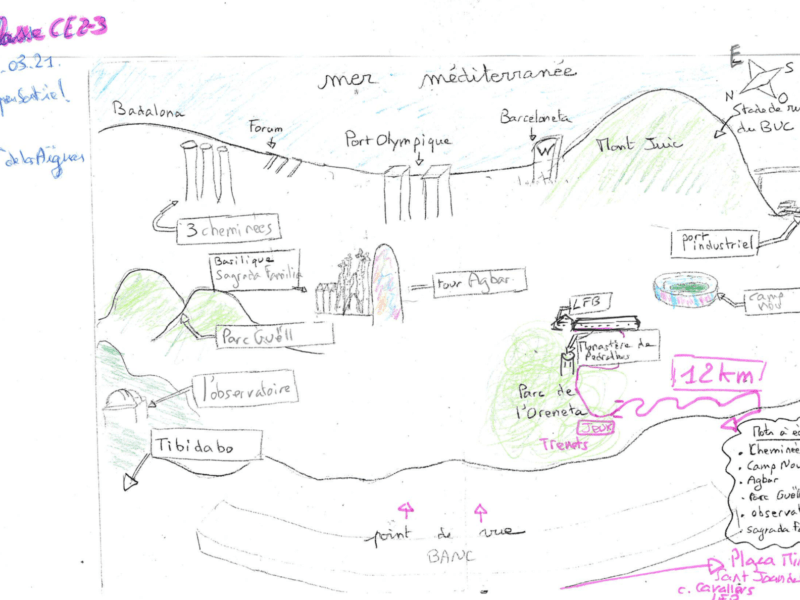 Classe CE2-3
.03.21.
de las Aigües
mer méditerranée
E
S
N
O
Badalona
Forum
Port Olympique
Barceloneta
W
Mont Juic
Stade de
du BUC
3 cheminées
port
industriel
Basilique
Sagrada Familia
tour Agbar
camp
nou
LFB
Parc Guëll
Monastère de
Pedralbes
l'observatoire
Parc de
l'Oreneta
12 km
JEUX
Trenets
Tibidabo
Mots à
• Cheminée
• Camp Nou
• Agbar
• Parc Guëll
• observat
• sagrada Fa
point de vue
BANC
Plaça
Sant Joan de
c. Cavallers
LFB